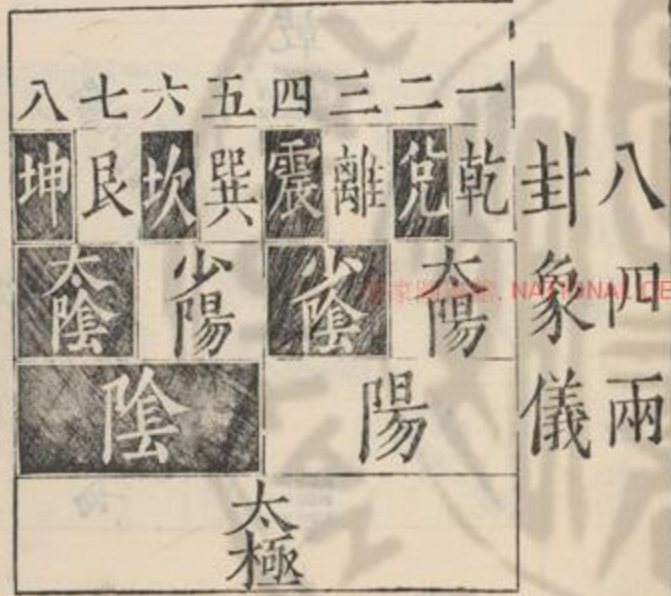 八卦
四象
兩儀
一二三四五六七八
乾兌離震巽坎艮坤
太陽 少陰 少陽 太陰
陽 陰
太極
NATIONAL CE